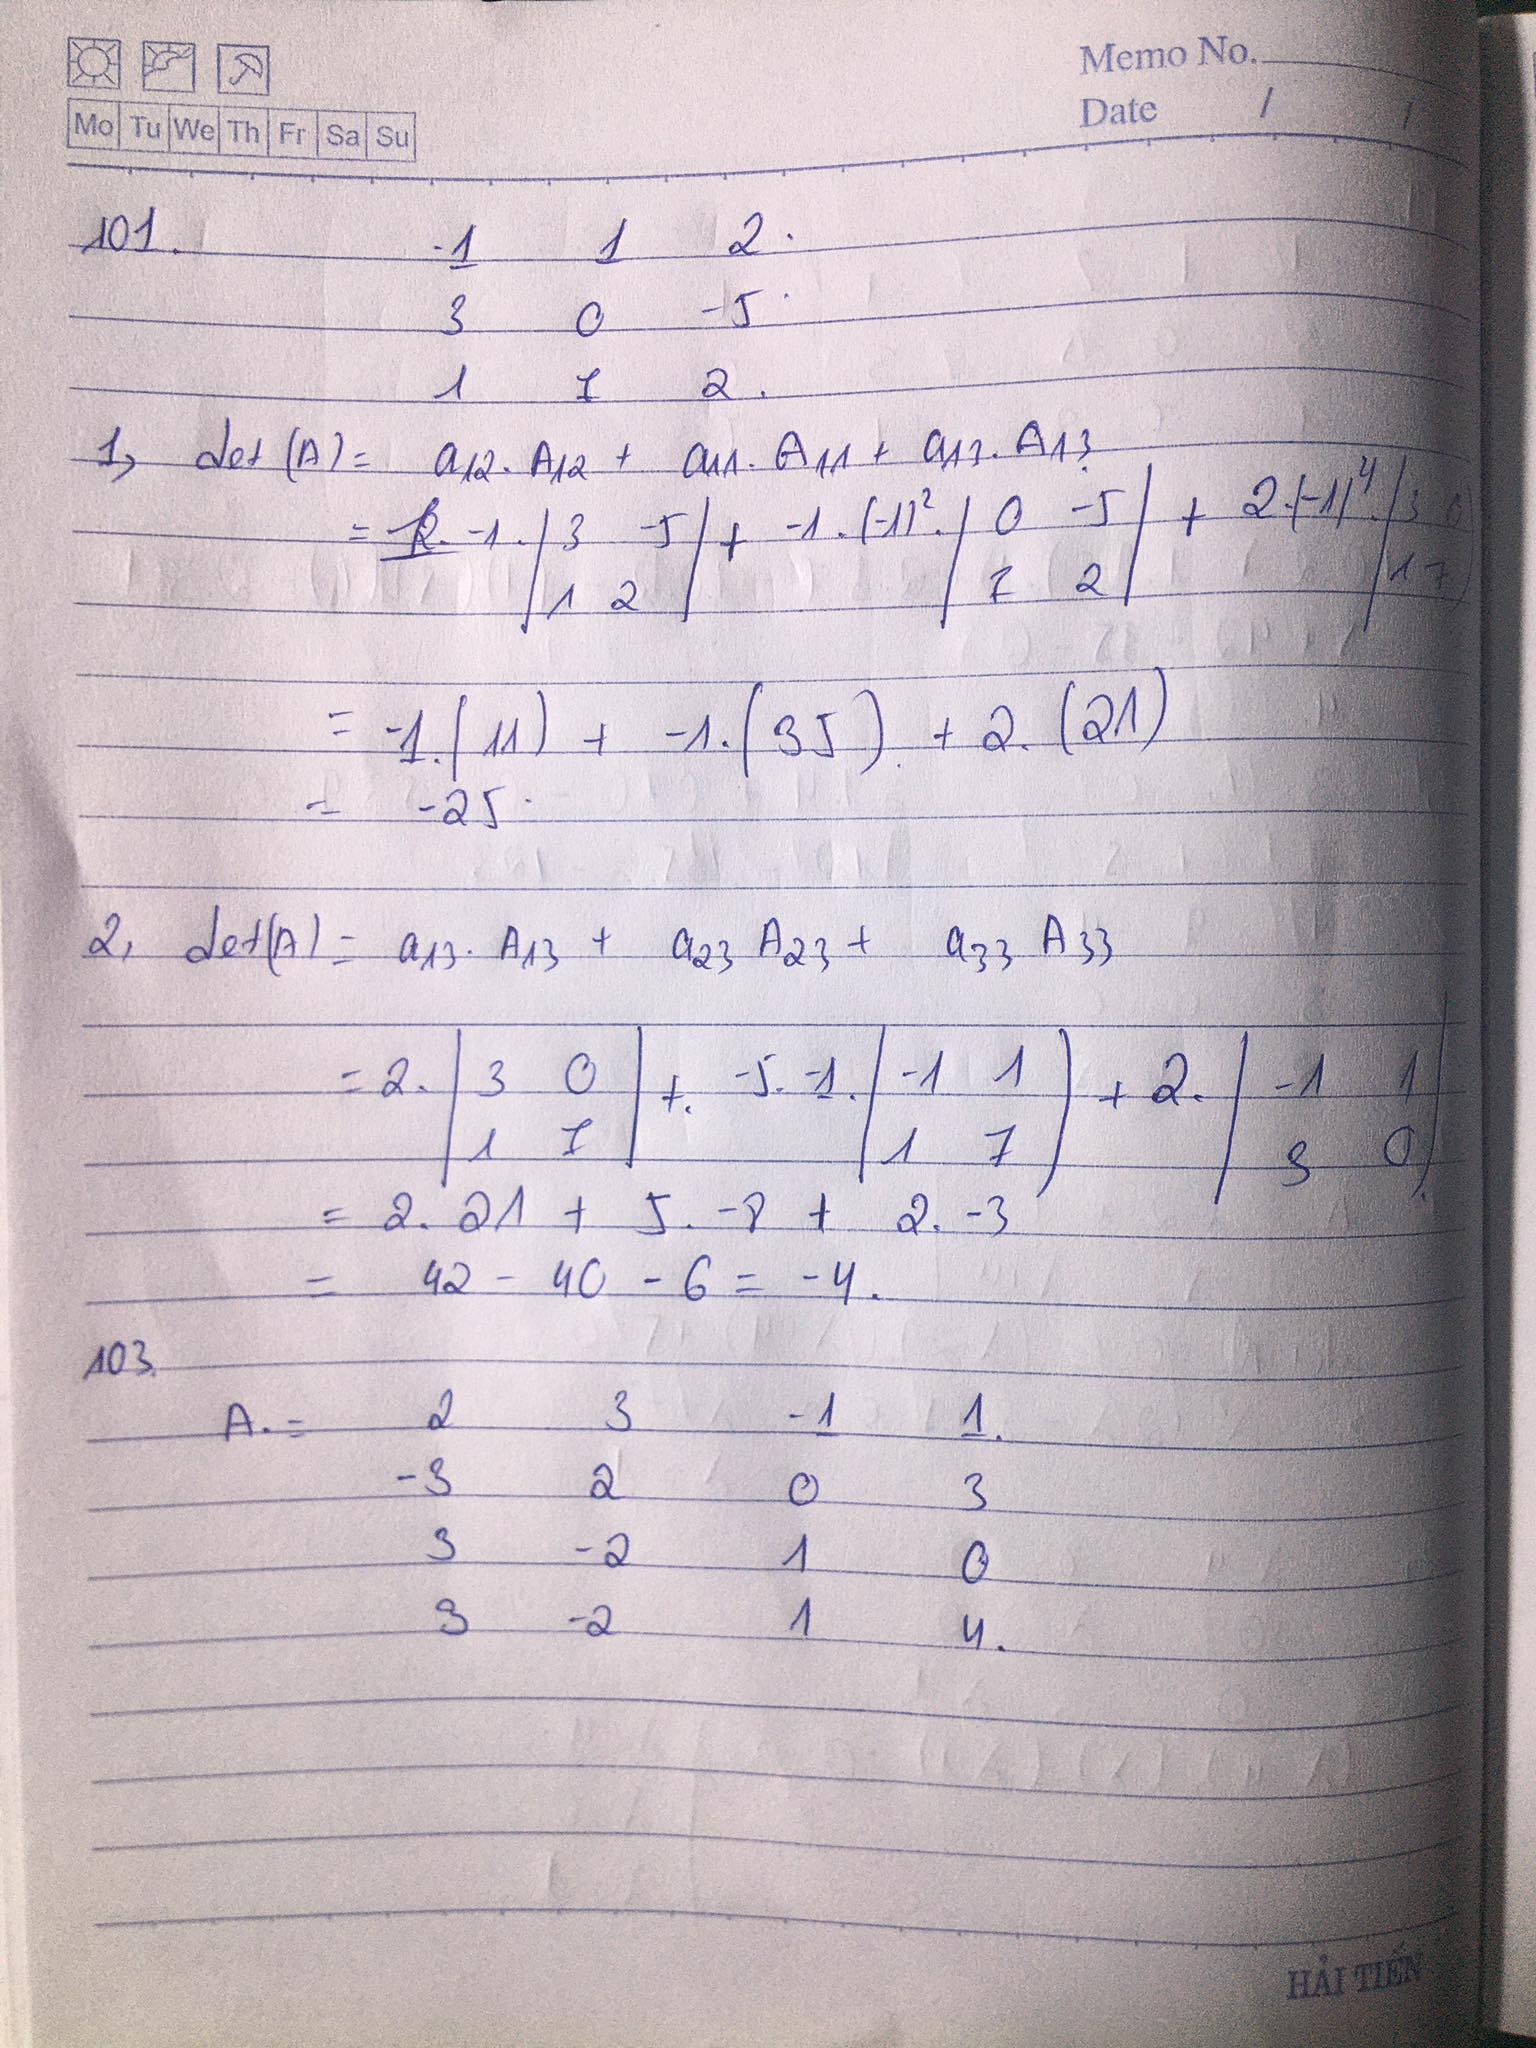 Memo No.
Mo Tu We Th Fr Sa Su
Date / /
101. -1 1 2.
3 0 -5.
1 7 2.
1, det(A) = a12. A12 + a11. A11 + a13. A13
= -1. | 3 -5 | + -1. (-1)². | 0 -5 | + 2.(-1)⁴. | 3 0 |
| 1 2 | | 7 2 | | 1 7 |
= -1. (11) + -1. (35) + 2. (21)
= -25.
2, det(A) = a13. A13 + a23 A23 + a33 A33
= 2. | 3 0 | + -5. -1. | -1 1 | + 2. | -1 1 |
| 1 7 | | 1 7 | | 3 0 |
= 2. 21 + 5. -8 + 2. -3
= 42 - 40 - 6 = -4.
103.
A. = 2 3 -1 1.
-3 2 0 3
3 -2 1 0
3 -2 1 4.
HẢI TIẾN